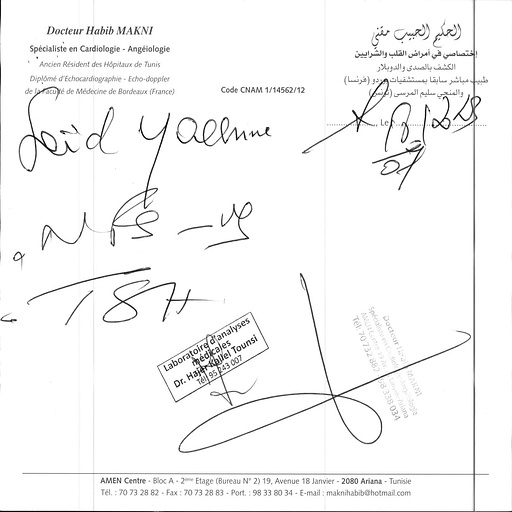 Docteur Habib MAKNI
Spécialiste en Cardiologie - Angéiologie
Ancien Résident des Hôpitaux de Tunis
Diplômé d'Echocardiographie - Echo-doppler
de la Faculté de Médecine de Bordeaux (France)
Code CNAM 1/14562/12
الحكيم الحبيب مقني
إختصاصي في أمراض القلب والشرايين
الكشف بالصدى والدوبلار
طبيب مباشر سابقا بمستشفيات بوردو (فرنسا)
والمنجي سليم المرسى (تونس)
, Le
Saïd
NFS - VS
TSH
Laboratoire d'analyses
médicales
Dr. Hajer Kallel Tounsi
Tél: 95 243 007
Docteur Habib MAKNI
Tél: 70 732 882 - 98 338 034
AMEN Centre - Bloc A - 2ème Etage (Bureau N° 2) 19, Avenue 18 Janvier - 2080 Ariana - Tunisie
Tél. : 70 73 28 82 - Fax : 70 73 28 83 - Port. : 98 33 80 34 - E-mail : maknihabib@hotmail.com